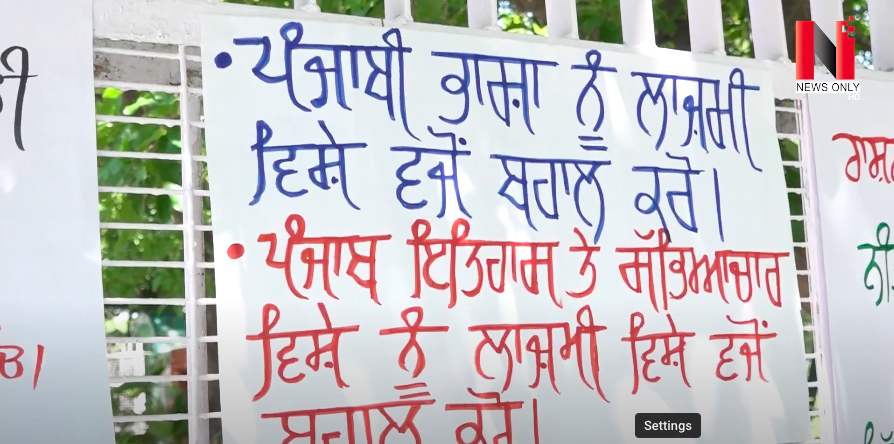 • ਪੰਜਾਬੀ ਭਾਸ਼ਾ ਨੂੰ ਲਾਜ਼ਮੀ
ਵਿਸ਼ੇ ਵਜੋਂ ਬਹਾਲ ਕਰੋ।
• ਪੰਜਾਬ ਇਤਿਹਾਸ ਤੇ ਸੱਭਿਆਚਾਰ
ਵਿਸ਼ੇ ਨੂੰ ਲਾਜ਼ਮੀ ਵਿਸ਼ੇ ਵਜੋਂ
ਬਹਾਲ ਕਰੋ।
N
NEWS ONLY
Settings